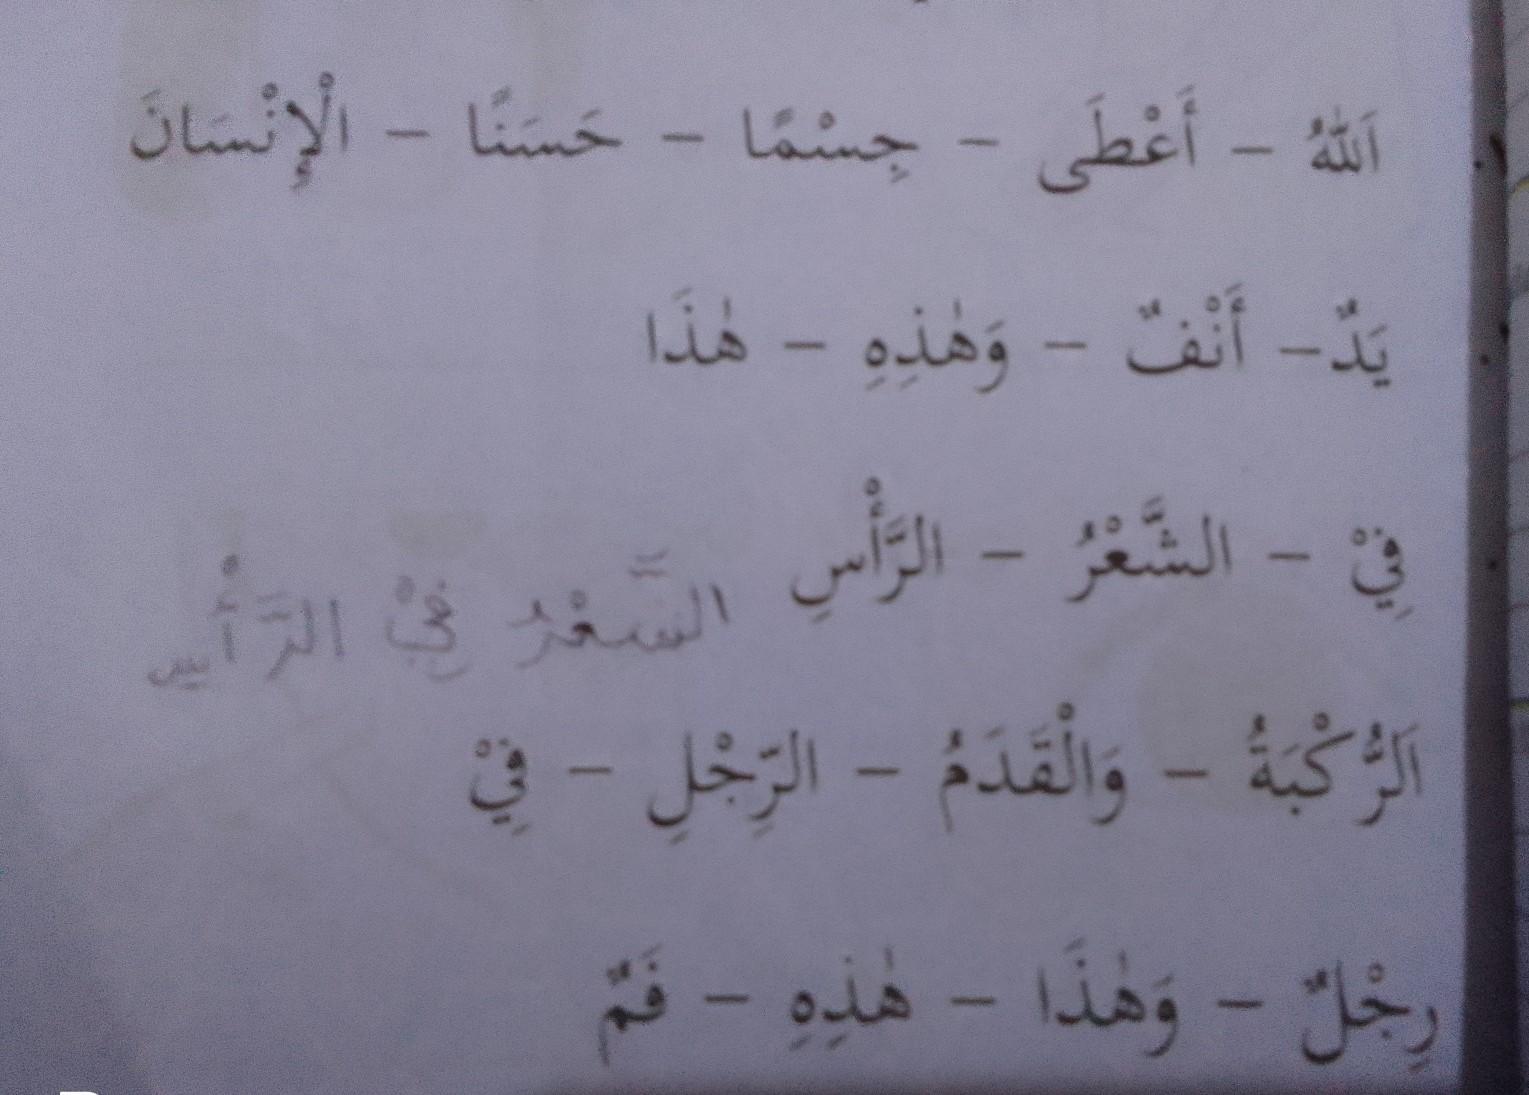 ١. اَللّٰهُ – أَعْطَى – جِسْمًا – حَسَنًا – الْإِنْسَانَ
يَدٌ – أَنْفٌ – وَهٰذِهِ – هٰذَا
فِيْ – الشَّعْرُ – الرَّأْسِ
الشَّعْرُ فِيْ الرَّأْسِ
اَلرُّكْبَةُ – وَالْقَدَمُ – الرِّجْلِ – فِيْ
رِجْلٌ – وَهٰذَا – هٰذِهِ – فَمٌ